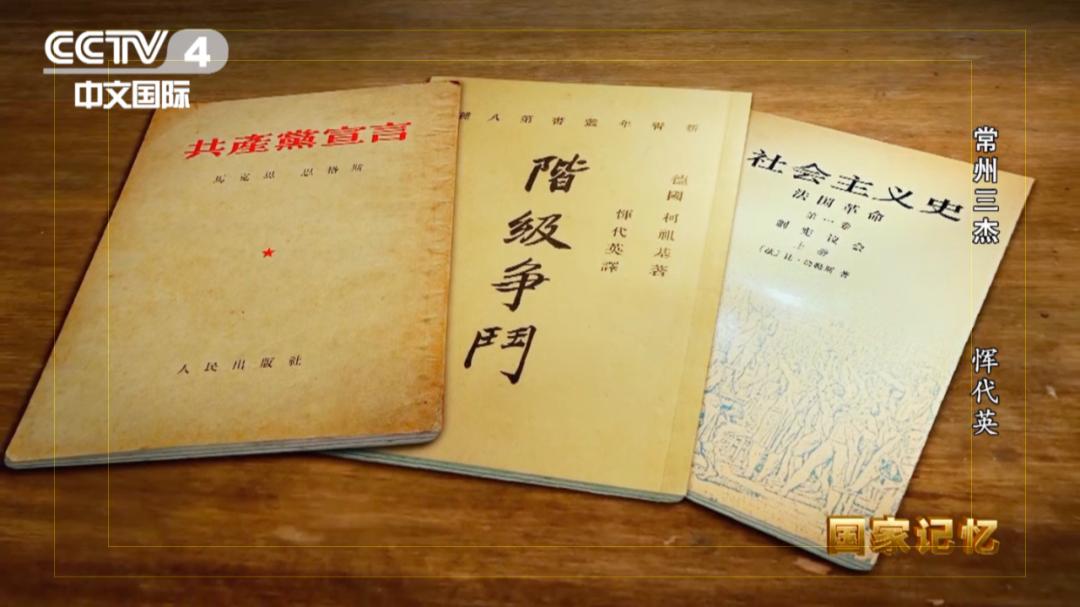 CCTV 4
中文国际
共產黨宣言
馬克思 恩格斯
人民出版社
新青年叢書第八種
階級争鬥
德國 柯祖基著
惲代英譯
社会主义史
法国革命
第一卷
制宪议会
上册
〔法〕让·饶勒斯 著
常州三杰 恽代英
国家记忆